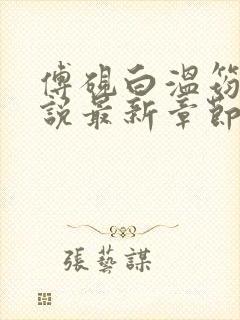 傅硯白溫笏
說最新章節
張藝謀